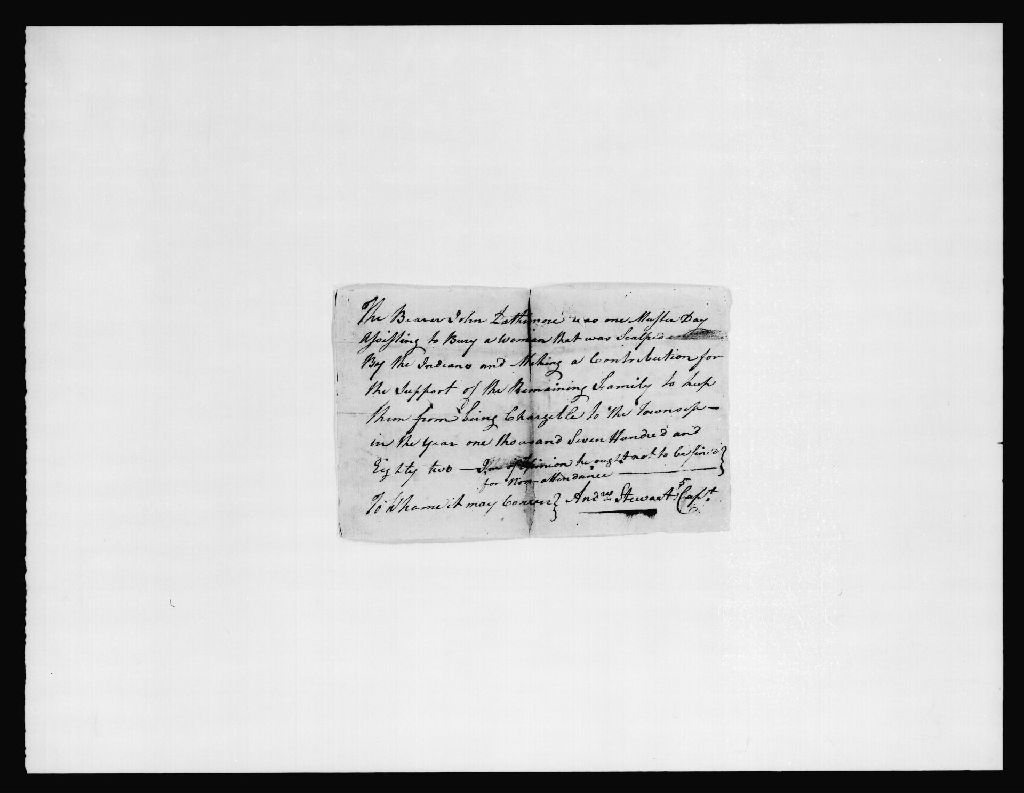 The Bearer John Lathimore was one Muster Day
Assisting to Bury a Woman that was Scalped
By the Indians and Making a Contribution for
the Support of the Remaining Family to keep
them from being Chargeble to the Township
in the Year one thousand Seven Hundred and
Eighty two — I am of Opinion he ought not to be fined
for Non-attendance
To Whome it may Concern } Andrew Stewart Capt.